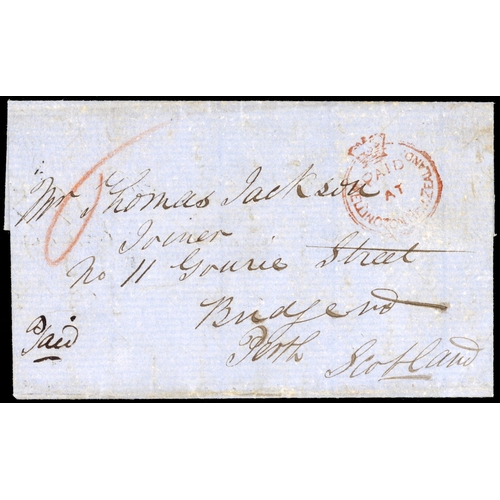 PAID
AT
DUNEDIN NEW-ZEALAND
6
Mr Thomas Jackson
Joiner
No 11 Gowrie Street
Bridgend
Perth
Scotland
Paid